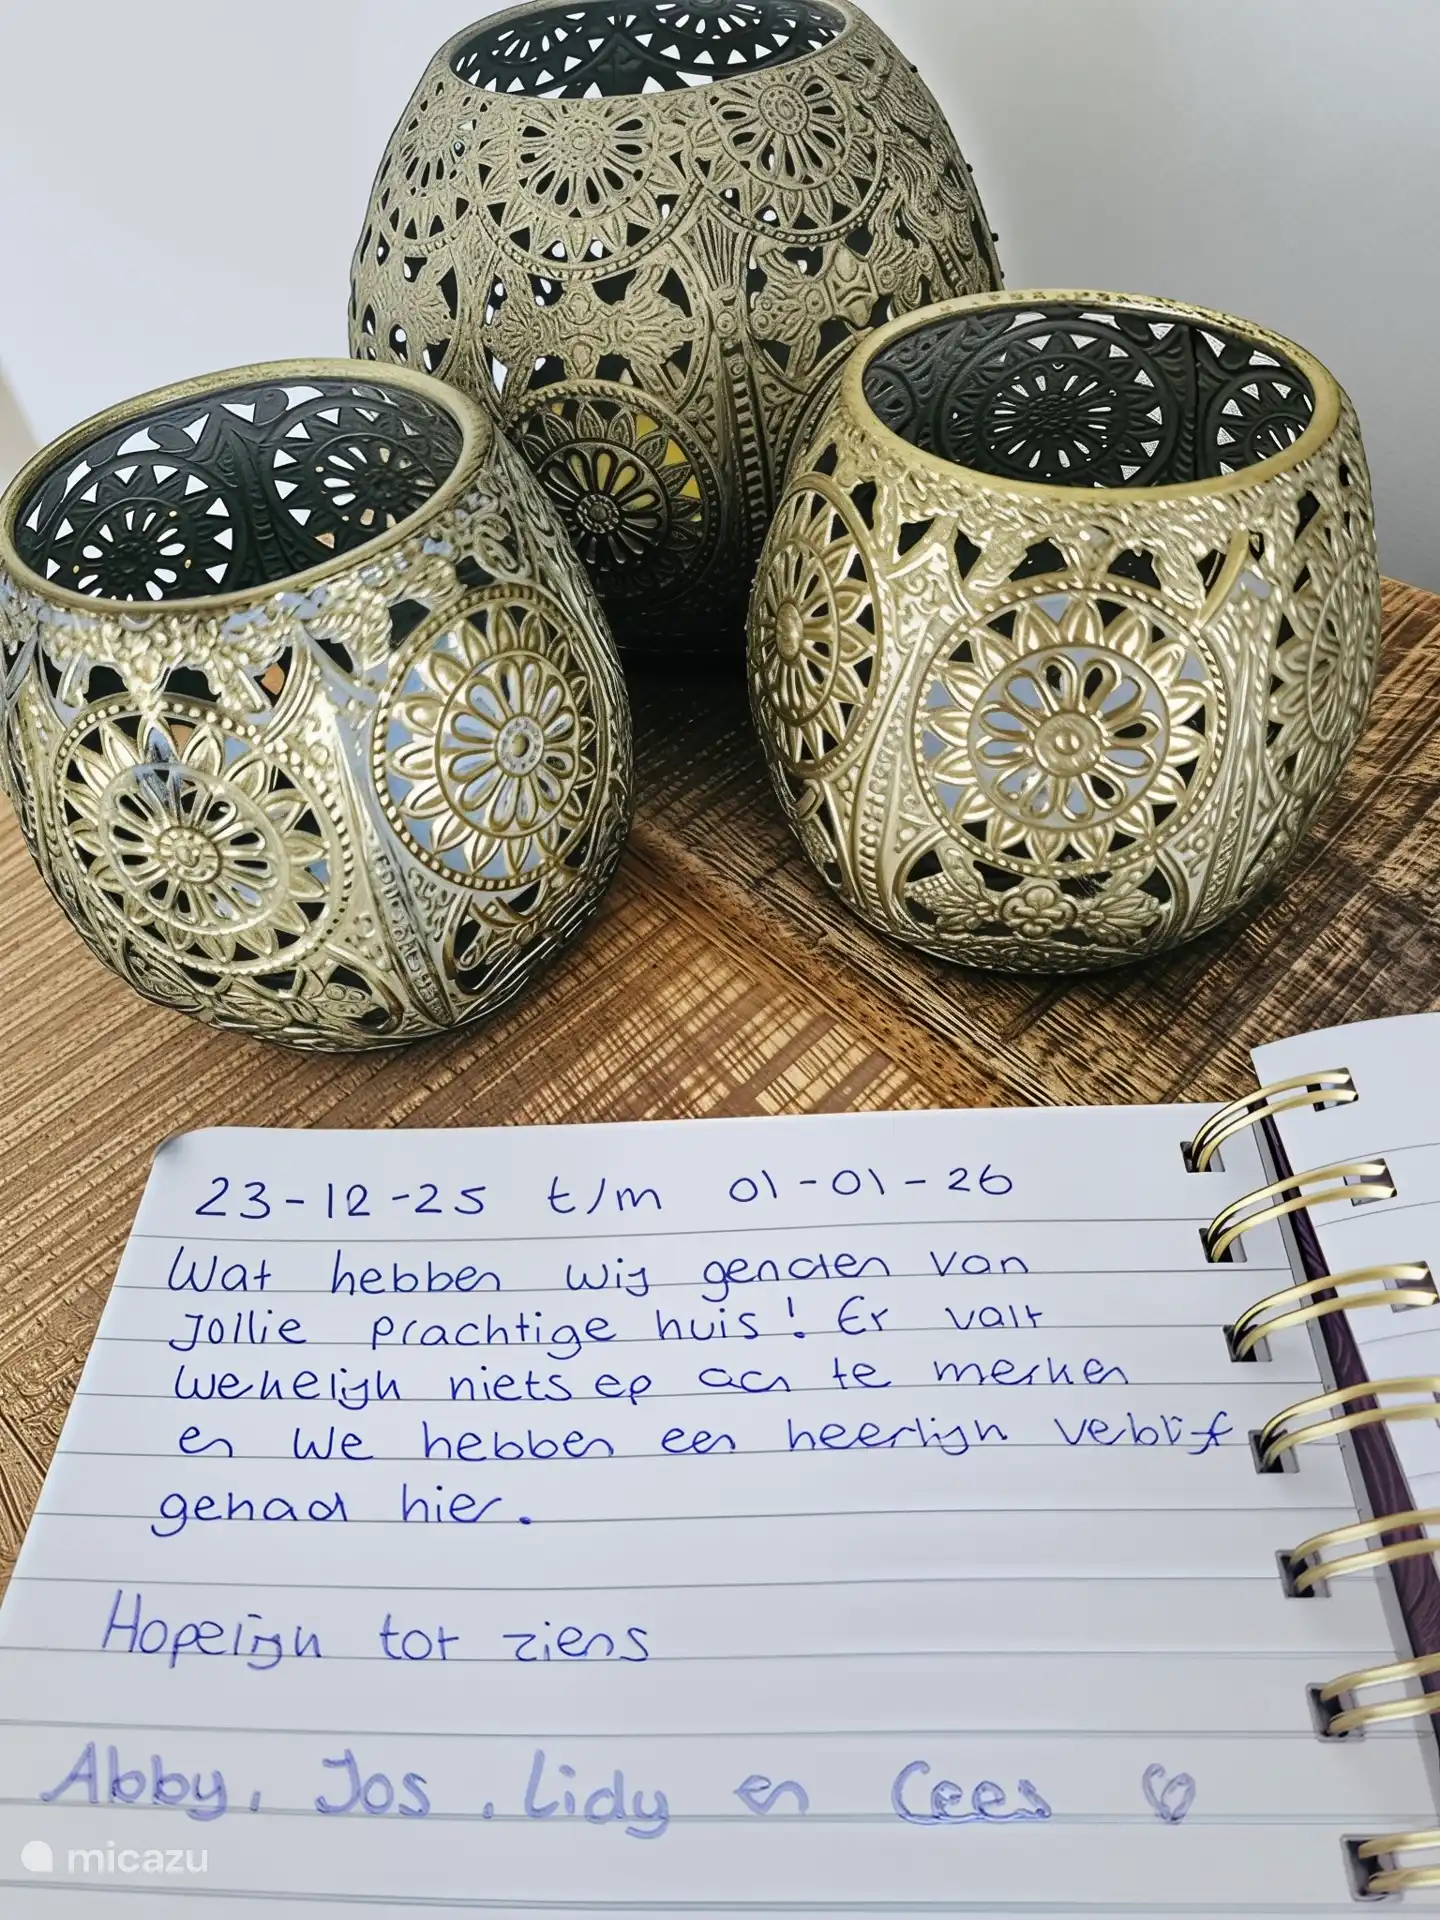 23-12-25 t/m 01-01-26
Wat hebben wij genoten van
jollie prachtige huis! Er valt
werkelijk niets op aan te merken
en we hebben een heerlijk verblijf
gehad hier.
Hopelijk tot ziens
Abby, Jos, Lidy en Cees
micazu